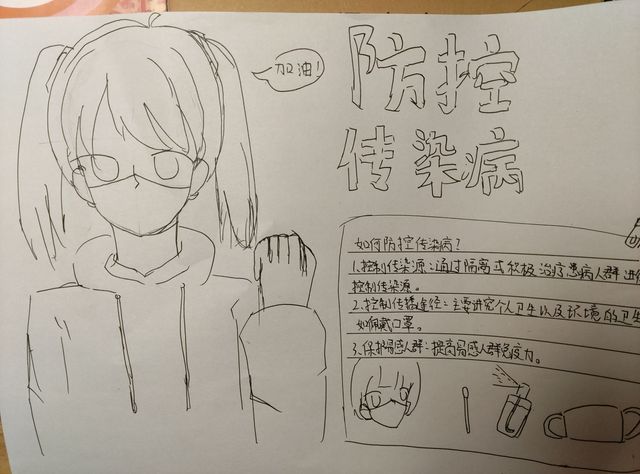 加油！
防控
传染病
如何防控传染病？
1.控制传染源：通过隔离或积极治疗患病人群进行
控制传染源。
2.控制传播途径：主要讲究个人卫生以及环境的卫生
如佩戴口罩。
3.保护易感人群：提高易感人群免疫力。